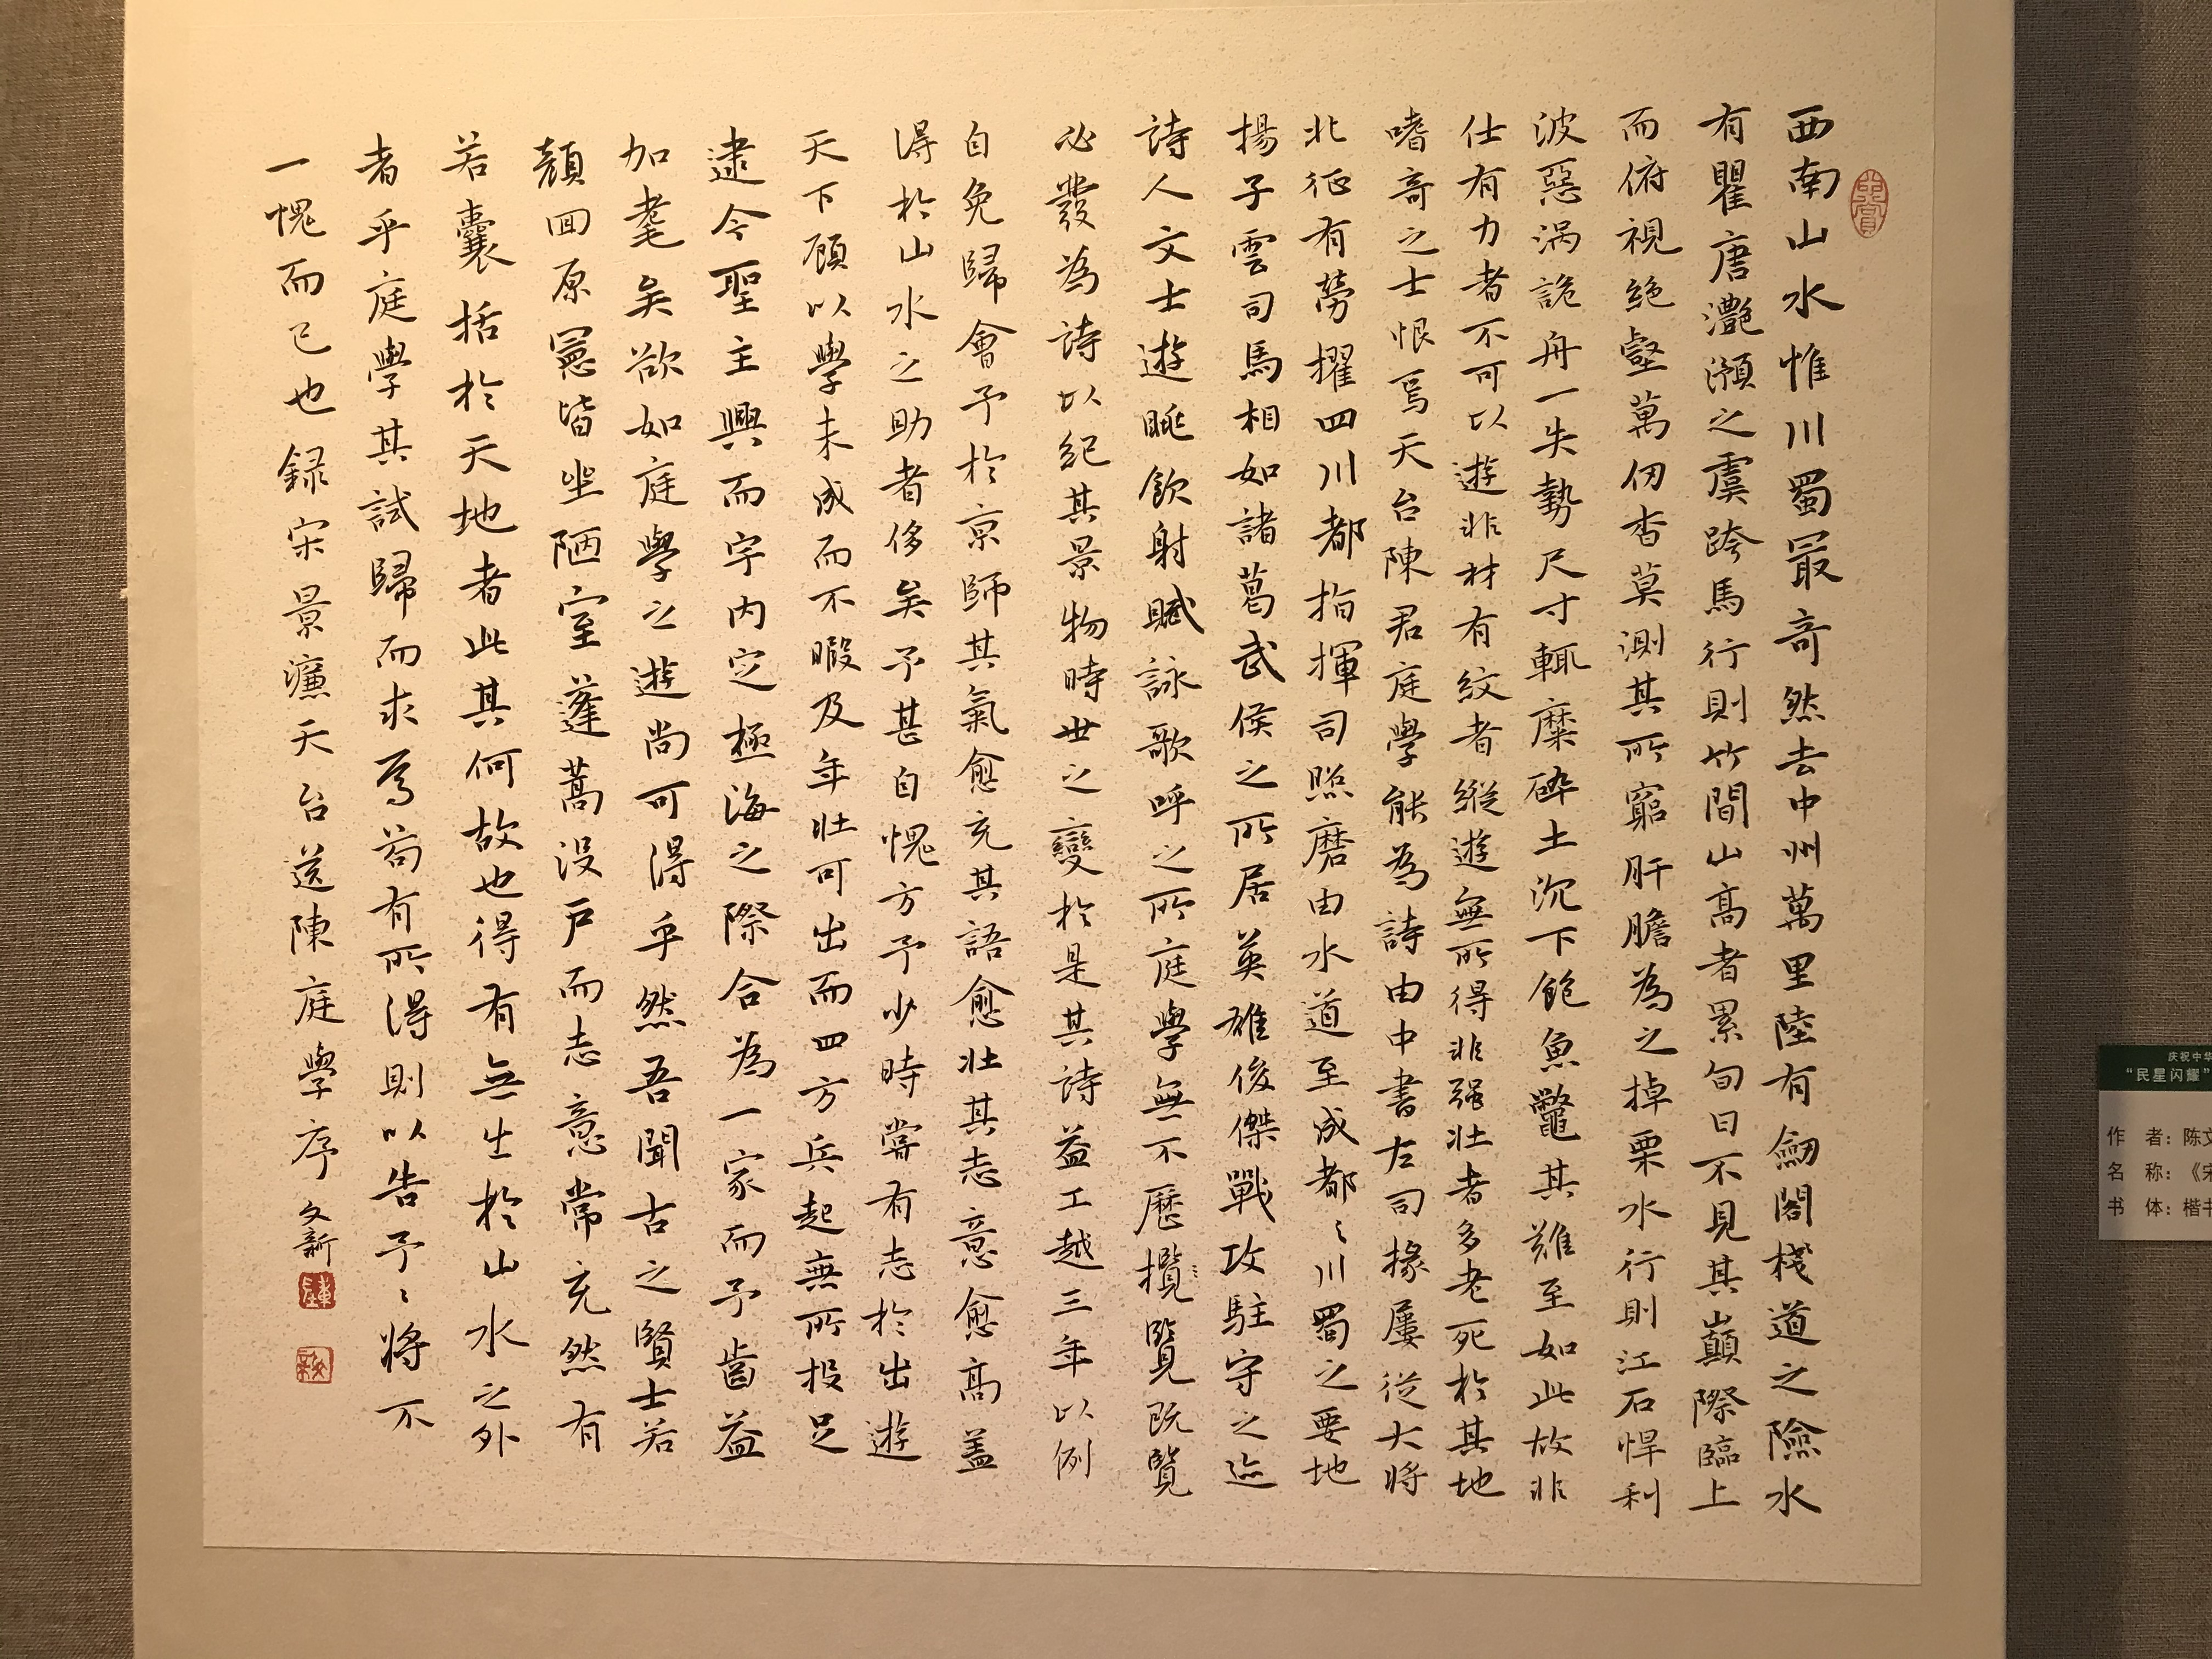 西南山水惟川蜀最奇然去中州萬里陸有劒閣棧道之險水
有瞿唐灩澦之虞跨馬行則竹間山高者累旬日不見其巔際臨上
而俯視絶壑萬仞杳莫測其所窮肝膽為之掉栗水行則江石悍利
波惡渦詭舟一失勢尺寸輒糜碎土沉下飽魚鼈其難至如此故非
仕有力者不可以遊非材有紋者縱遊無所得非强壯者多老死於其地
嗜奇之士恨焉天台陳君庭學能為詩由中書左司掾屢從大將
北征有勞擢四川都指揮司照磨由水道至成都〻川蜀之要地
揚子雲司馬相如諸葛武侯之所居英雄俊傑戰攻駐守之迹
詩人文士遊眺飲射賦詠歌呼之所庭學無不歷攬覽既覽
必發為詩以紀其景物時世之變於是其詩益工越三年以例
自免歸會予於京師其氣愈充其語愈壯其志意愈高蓋
得於山水之助者侈矣予甚自愧方予少時嘗有志於出遊
天下顧以學未成而不暇及年壯可出而四方兵起無所投足
逮今聖主興而宇内定極海之際合為一家而予齒益
加耄矣欲如庭學之遊尚可得乎然吾聞古之賢士若
顔回原憲皆坐陋室蓬蒿没戶而志意常充然有
若囊括於天地者此其何故也得有無出於山水之外
者乎庭學其試歸而求焉苟有所得則以告予〻將不
一愧而已也録宋景濂天台送陳庭學序 文新
庆祝中华
“民星闪耀”
作 者：陈文
名 称：《宋
书 体：楷书